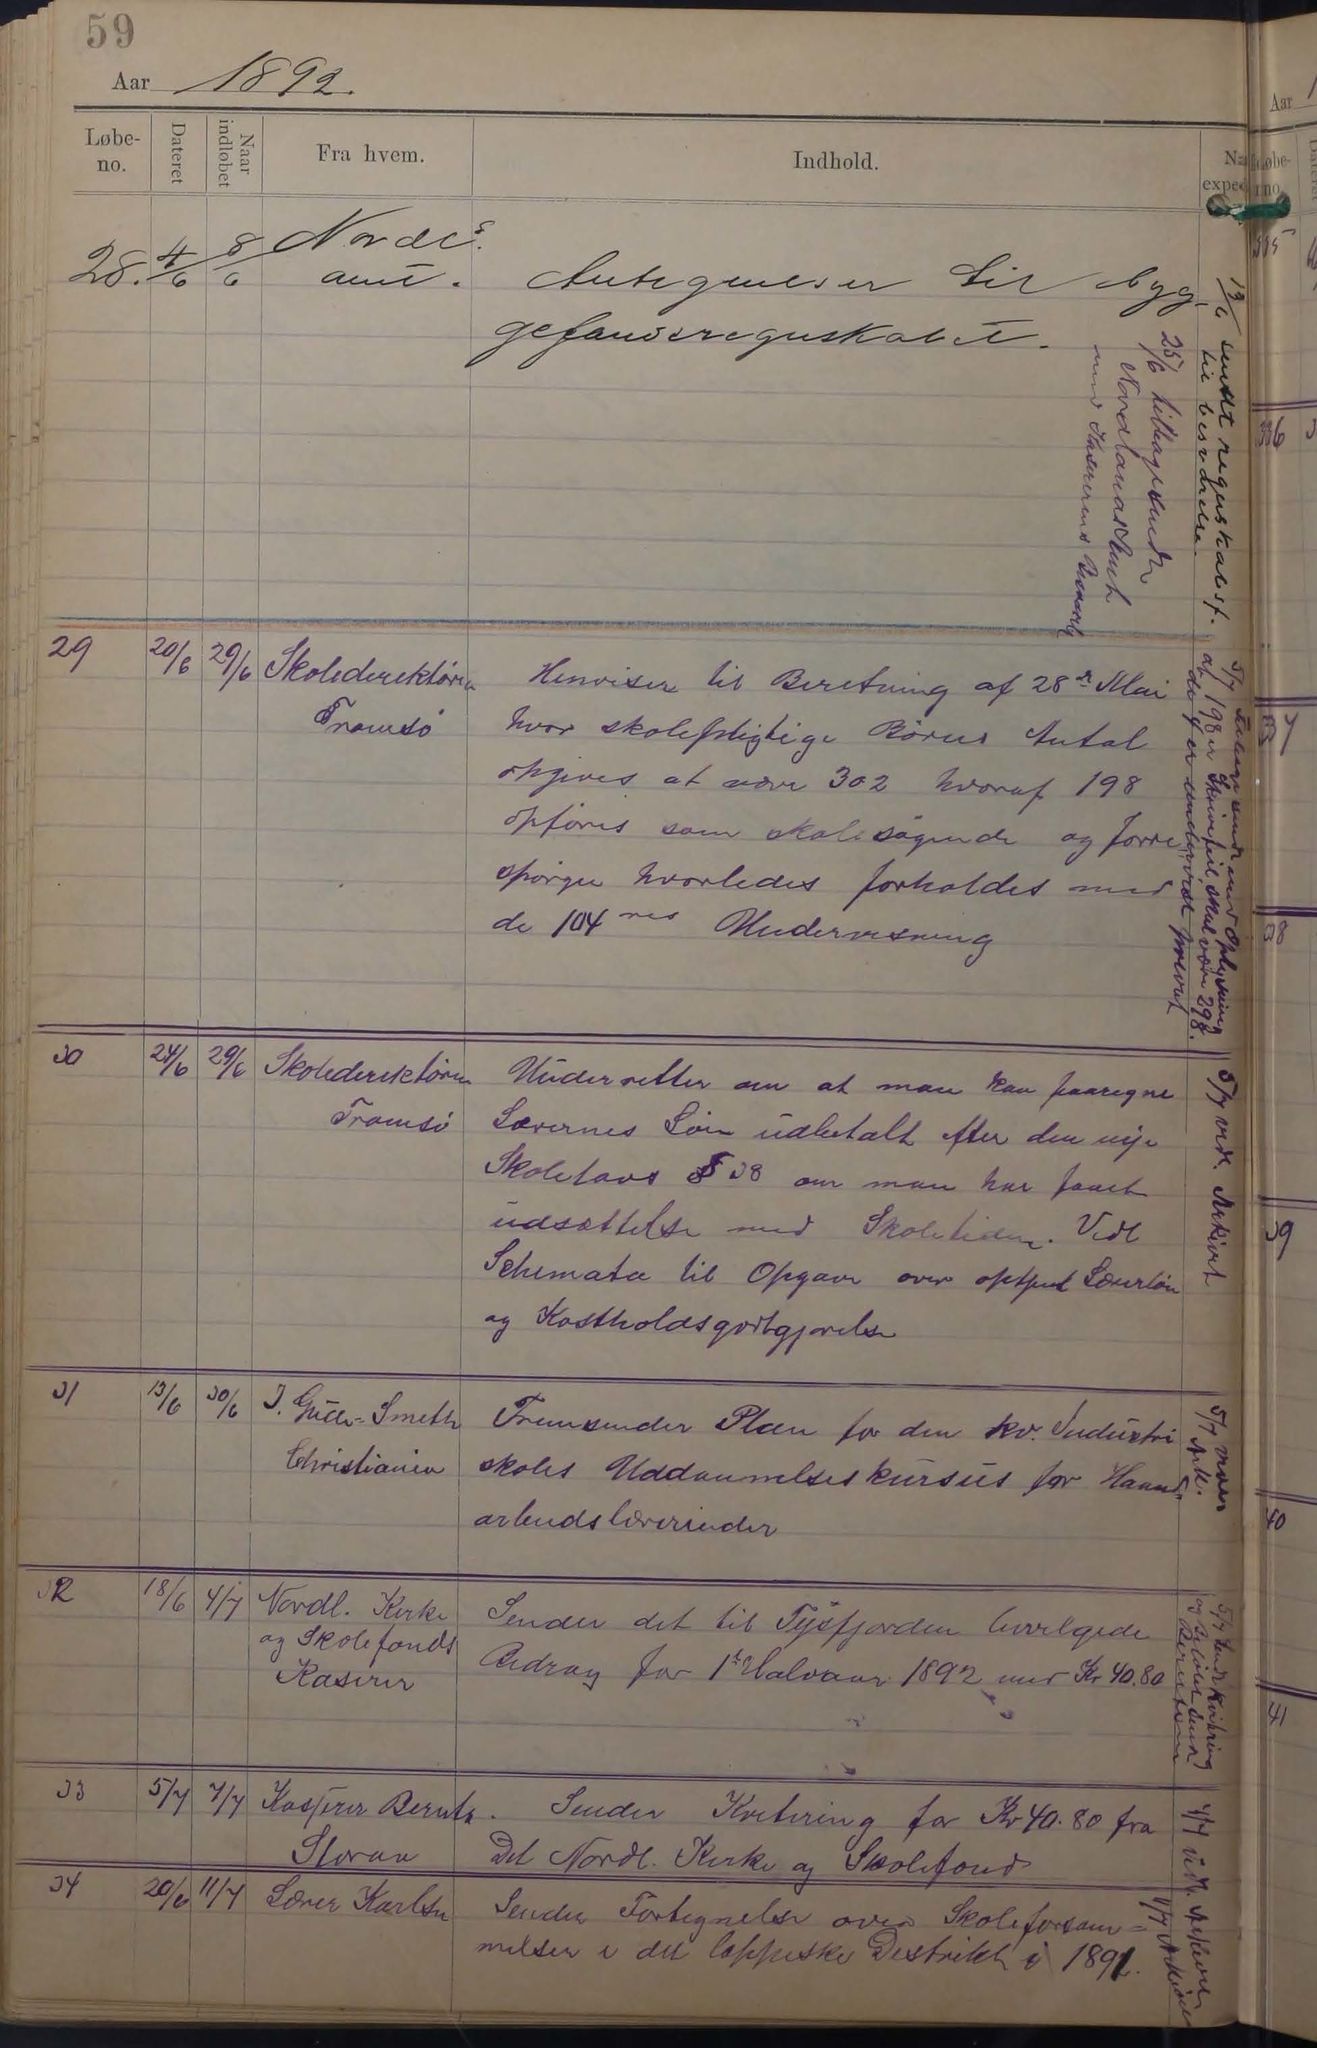 59
Aar 1892.
Løbe-
no.
Dateret
Naar
indløbet
Fra hvem.
Indhold.
28. 4/6 8/6 Nordl's
amt. Antegnelser til byg-
gefondsregnskabet.
13/6 sendt regnskabsf.
til besvarelse.
25/6 tilbagesendt
Nordlands Amt
med Kasserens
29 20/6 29/6 Skoledirektøren
Tromsø
Henviser til Beretning af 28de Mai
hvor skolepligtige Børns Antal
opgives at være 302 hvoraf 198
opføres som skolesøgende og fore
spørger hvorledes forholdes med
de 104 res Undervisning
5/7 med Oplysning
at 198 er Skrivfeil, skal være 298.
de 4 er undervist privat
30 24/6 29/6 Skoledirektøren
Tromsø
Underretter om at man kan paaregne
Lærernes Løn udbetalt efter den nye
Skolelovs § 38 om man har faaet
udsættelse med Skoletiden. Vedl
Schemata til Opgave over optjent Lærerløn
og Kostholdsgodtgjørelse
5/7 vedl. Arkivet
31 13/6 30/6 J. Gude-Smith
Christiania
Fremsender Plan for den kv. Industri
skoles Uddannelseskursus for Haand-
arbeidslærerinder
5/7
Ark.
32 18/6 4/7 Nordl. Kirke
og Skolefonds
Kasserer
Sender det til Tysfjorden bevilgede
Bidrag for 1ste Halvaar 1892 med Kr 40.80
5/7 sendt Kvittering
og Beløbet sendt
33 5/7 7/7 Kasserer Berntz.
Storaa
Sender Kvitering for Kr 40.80 fra
Det Nordl. Kirke og Skolefond
7/7 vedl. Arkivet
34 20/6 11/7 Lærer Karlsen
Sender Fortegnelse over Skoleforsøm=
melser i det lappiske Distrikt i 1891.
11/7 Arkivet